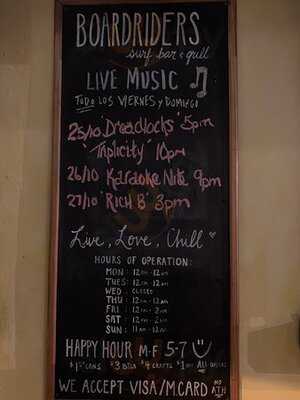 BOARDRIDERS
surf bar & grill
LIVE MUSIC
TODO LOS VIERNES Y DOMINGO
25/10 'Dreadlocks' 5pm
'Triplicity' 10pm
26/10 Karaoke Nite 9pm
27/10 'RICH B' 3pm
Live, Love, Chill
HOURS OF OPERATION:
MON: 12PM-12AM
TUES: 12PM-12AM
WED: CLOSED
THU: 12PM-12AM
FRI: 12PM-2AM
SAT: 12PM-2AM
SUN: 11AM-12AM
HAPPY HOUR M-F 5-7
CANS $3 $4 CRAFTS $1 OFF
WE ACCEPT VISA/M.CARD NO ATH